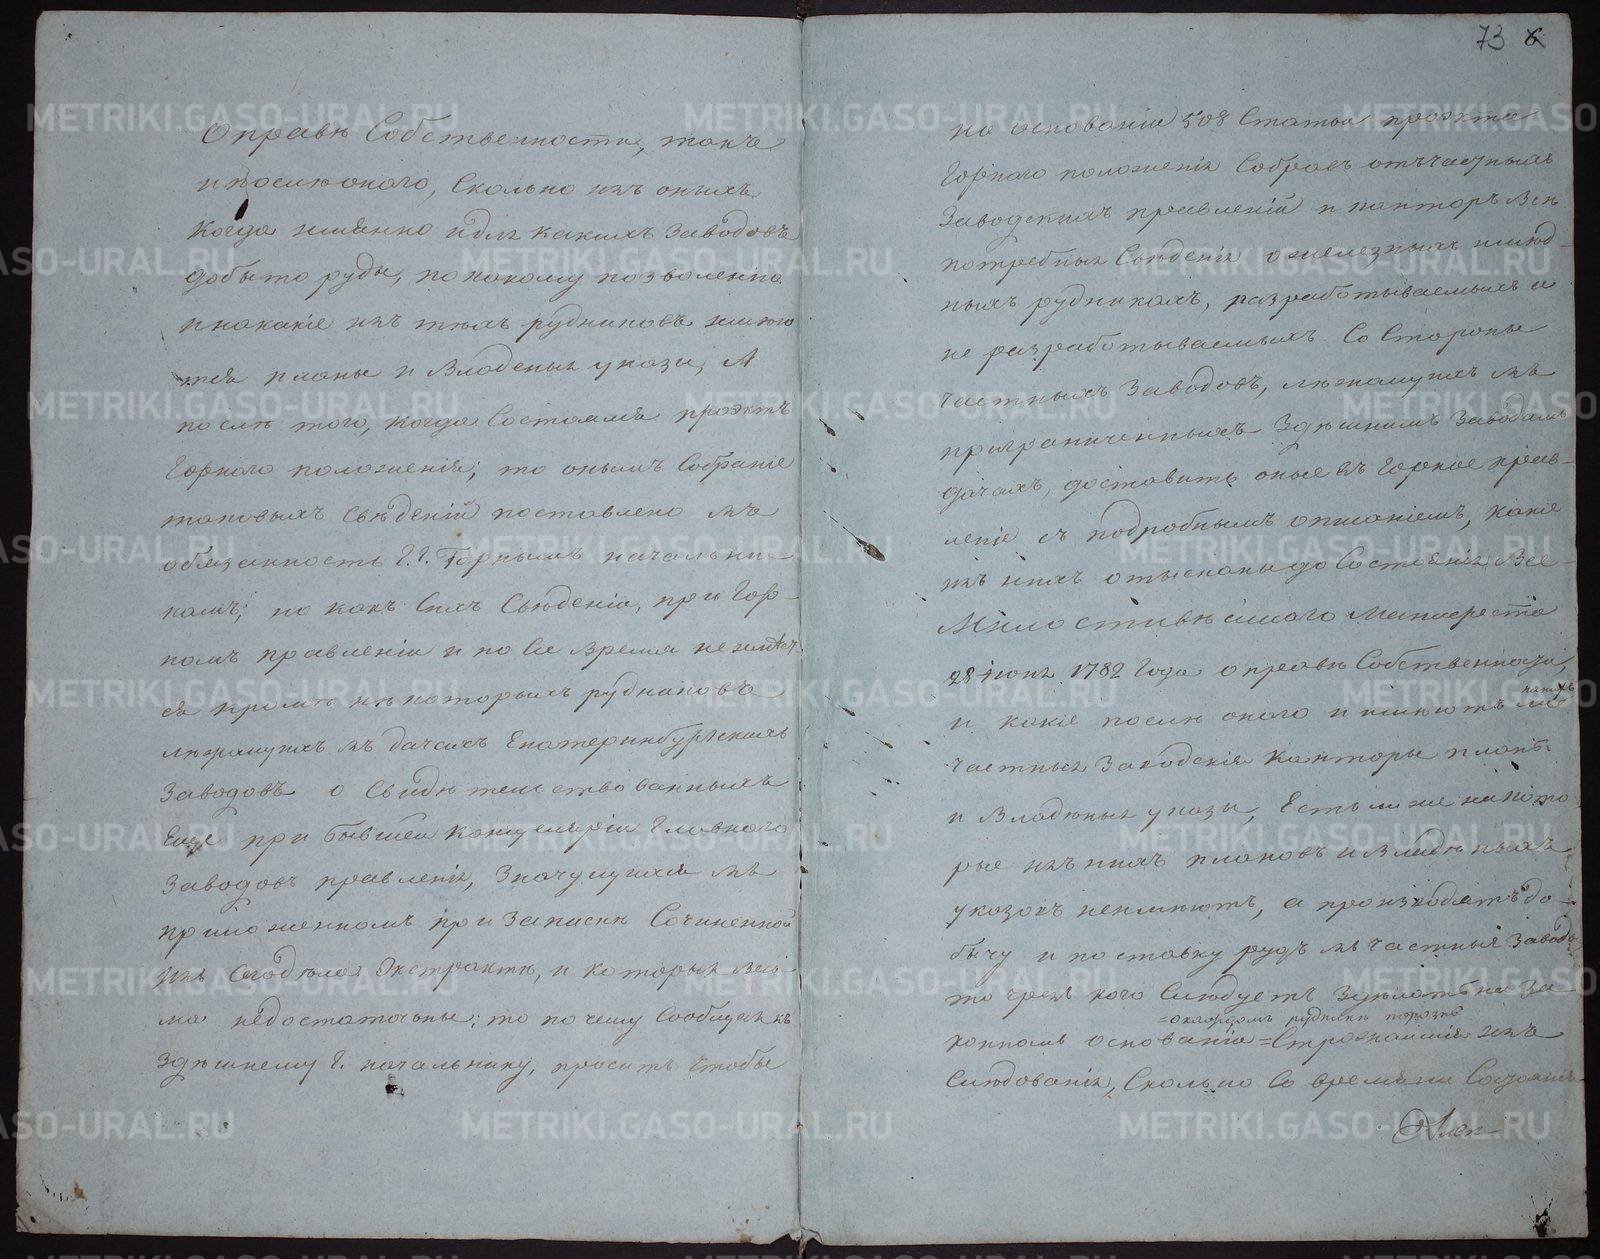 о правѣ Собственности, такъ
и послѣ оного, сколько изъ оныхъ
когда имянно и для какихъ заводовъ
добыто руды, по какому позволенію
и на какіе изъ тѣхъ рудниковъ имѣю
тся планы и владеныя указы, А
послѣ того, когда состоялся проэктъ
Горнаго положенія; то онымъ собраніе
таковыхъ свѣденій поставлено въ
обязанность Г.Г. Горнымъ начальни-
камъ; но какъ сихъ свѣденій, при Гор-
номъ правленіи и по сіе время не имѣет
ся кромѣ нѣкоторыхъ рудниковъ
лѣжащихъ въ дачахъ Екатеринбургскихъ
заводовъ о свидѣтельствованныхъ
еще при бывшей канцеляріи Главного
заводовъ правленія, значущихся въ
приложенномъ при запискѣ сочиненной
изъ сего дѣла экстрактѣ, и которыя весь-
ма недостаточны; то по чему сообщая къ
здѣшнему Г. начальнику, просить чтобы
73 6
на основаніи 508 статьи проэкта
Горнаго положенія собравъ отъ частныхъ
заводскихъ правленій и канторъ всѣ
потребныя свѣденія о железныхъ и мѣд-
ныхъ рудникахъ, разработываемыхъ и
не разработываемыхъ со стороны
частныхъ заводовъ, лѣжащихъ въ
приграниченныхъ здѣшнимъ заводамъ
дачахъ, доставить оные въ горное прав-
леніе съ подробнымъ описаніемъ, какіе
изъ нихъ отысканы до состоянія Все-
Милостивѣйшаго Манифеста
28 июня 1782 года о правѣ собственности,
и какіе послѣ оного и имѣютъ ли
на нихъ
частныя заводскія канторы планы
и владѣныя указы, Естьли же на кото
рые изъ нихъ плановъ и владѣныхъ
указовъ не имѣютъ, а производятъ до-
бычу и поставку рудъ въ частныя заводы
то чрезъ кого слѣдуетъ здѣлать на за
=о каждомъ рудникѣ порознь
конномъ основаніи =строжайшія из
слѣдованія, сколько со времяни состоянія